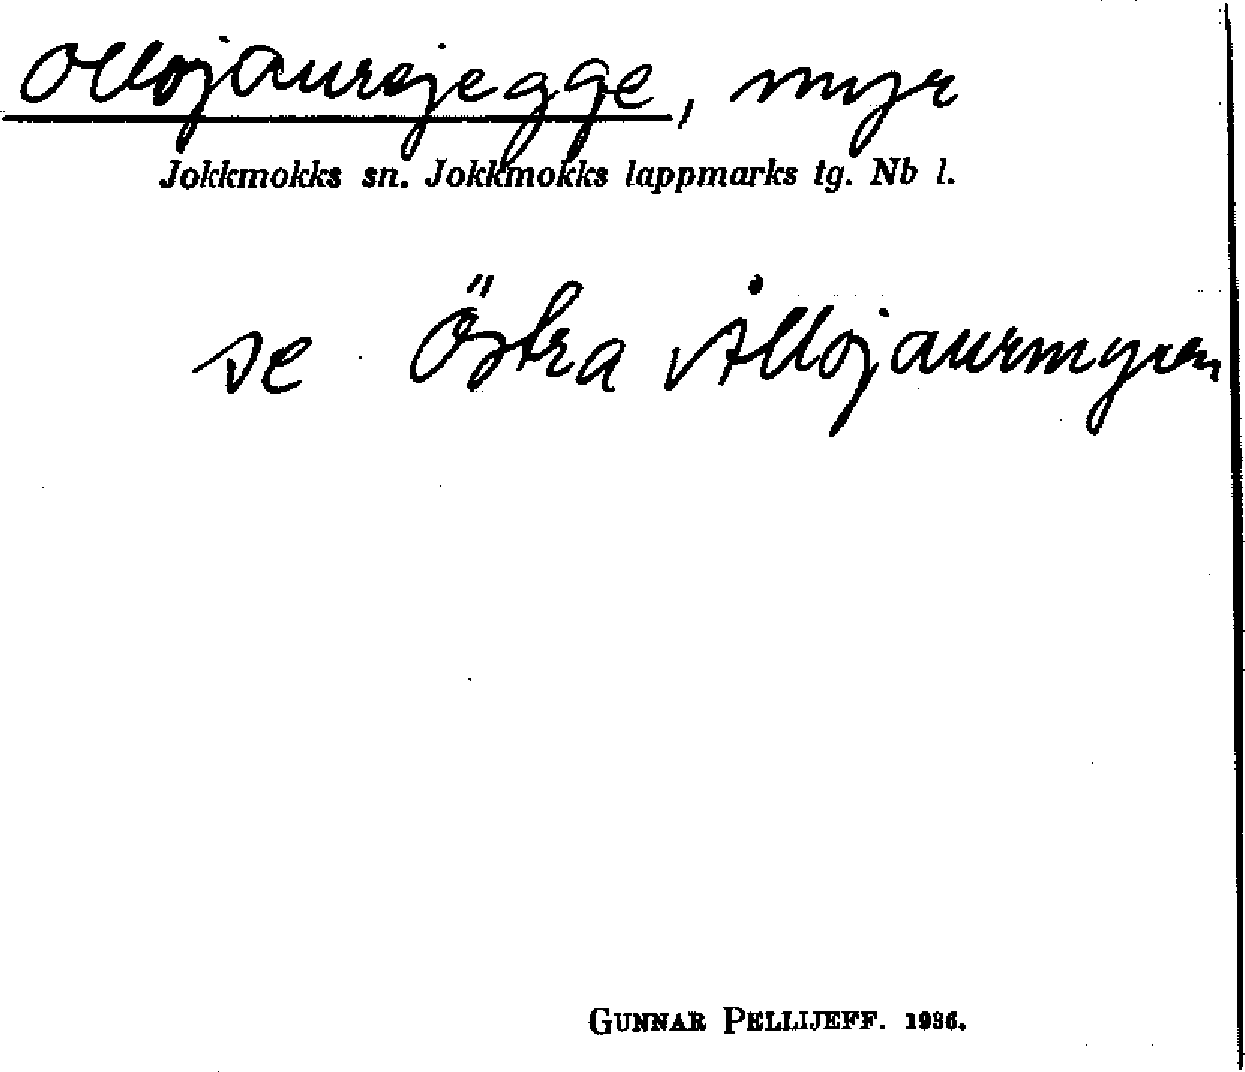 Ollojaurejegge, myr
Jokkmokks sn. Jokkmokks lappmarks tg. Nb l.
se Östra Ållojaurmyren
GUNNAR PELLIJEFF. 1936.